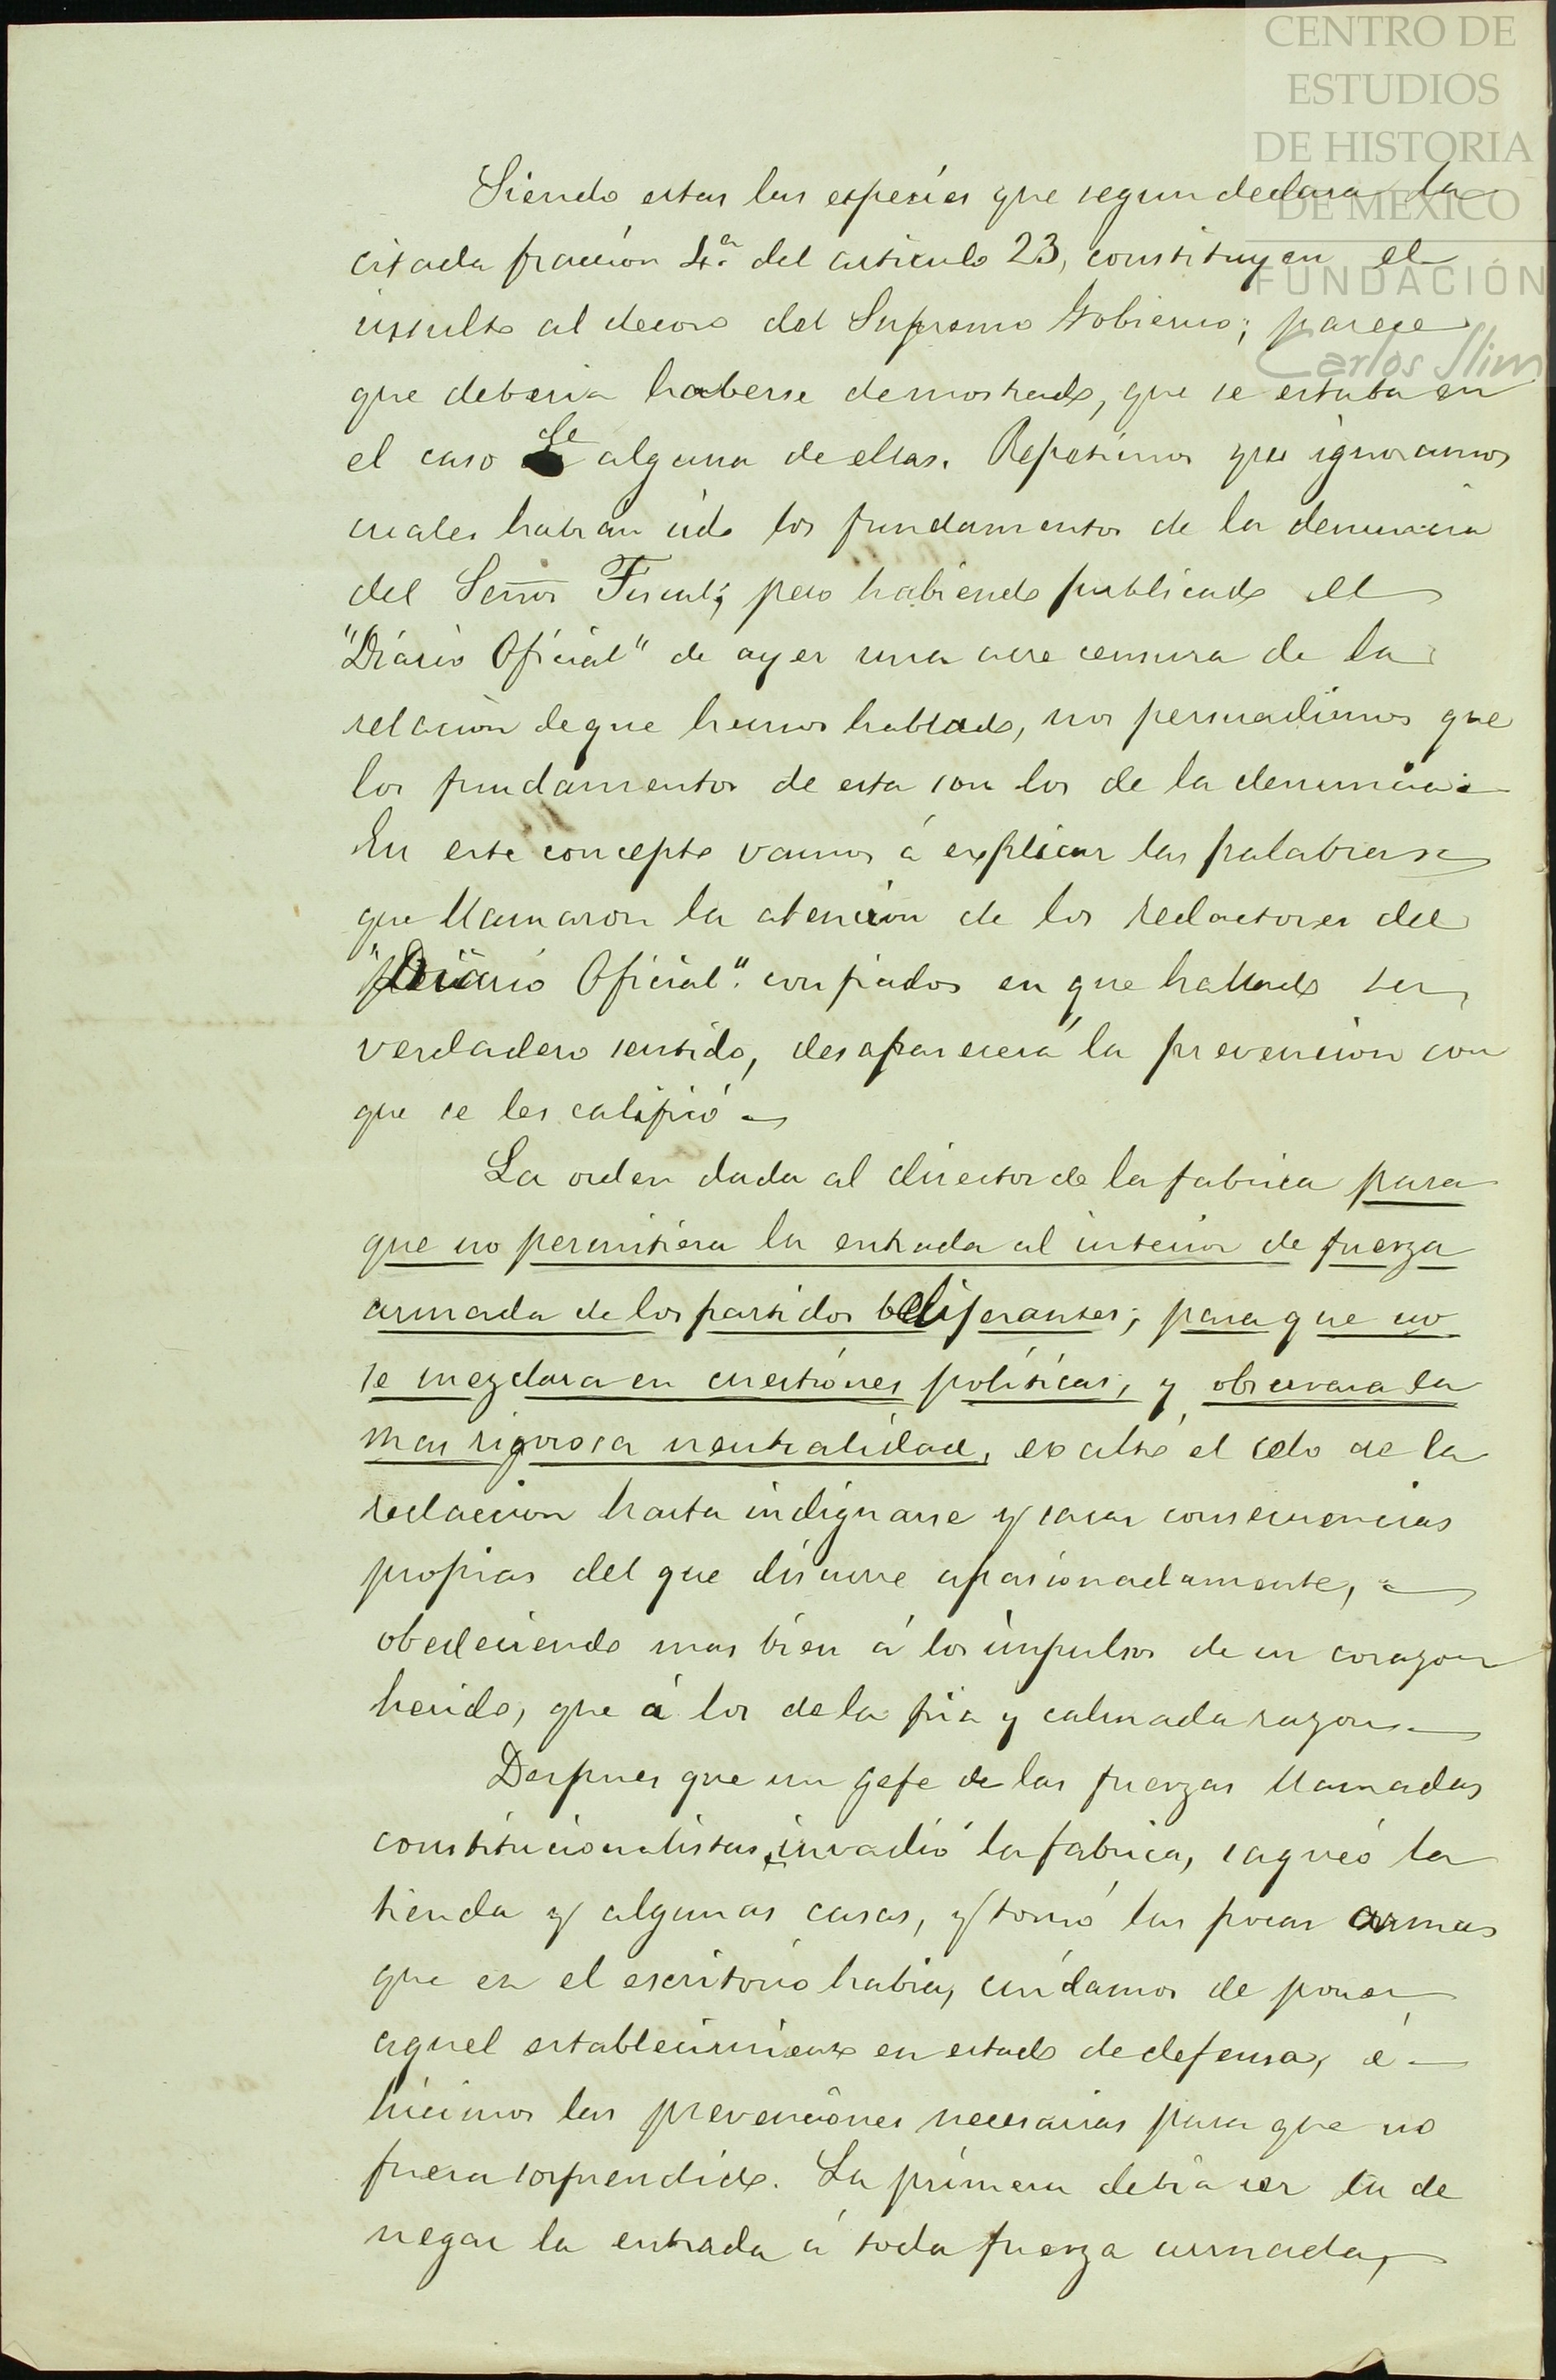 CENTRO DE
ESTUDIOS
DE HISTORIA
DE MÉXICO
FUNDACIÓN
Carlos Slim
Siendo estas las especies que segun declara la
citada fracción 4.ª del artículo 23, constituyen el
insulto al decoro del Supremo Gobierno; parece
que deberia haberse demostrado, que se estaba en
el caso de alguna de ellas. Repetimos que ignoramos
cuales habran sido los fundamentos de la denuncia
del Señor Fiscal; pero habiendo publicado el
"Diario Oficial" de ayer una acre censura de la
relación de que hemos hablado, nos persuadimos que
los fundamentos de esta son los de la denuncia.
En este concepto vamos á explicar las palabras
que llamaron la atencion de los redactores del
"Diario Oficial". confiados en que hallado su
verdadero sentido, desaparecerá la prevencion con
que se les calificó
La orden dada al director de la fabrica para
que no permitiera la entrada al interior de fuerza
armada de los partidos beligerantes; para que no
se mezclara en cuestiones políticas, y observara la
mas rigorosa neutralidad, exaltó el celo de la
redaccion hasta indignarse y sacar consecuencias
propias del que discurre apasionadamente,
obedeciendo mas bien á los impulsos de un corazon
herido, que á los de la fria y calmada razon.
Despues que un gefe de las fuerzas llamadas
constitucionalistas invadió la fabrica, saqueó la
tienda y algunas casas, y tomó las pocas armas
que en el escritorio habia, cuidamos de poner
aquel establecimiento en estado de defensa, é
hicimos las prevenciones necesarias para que no
fuera sorprendido. La primera debia ser la de
negar la entrada á toda fuerza armada,